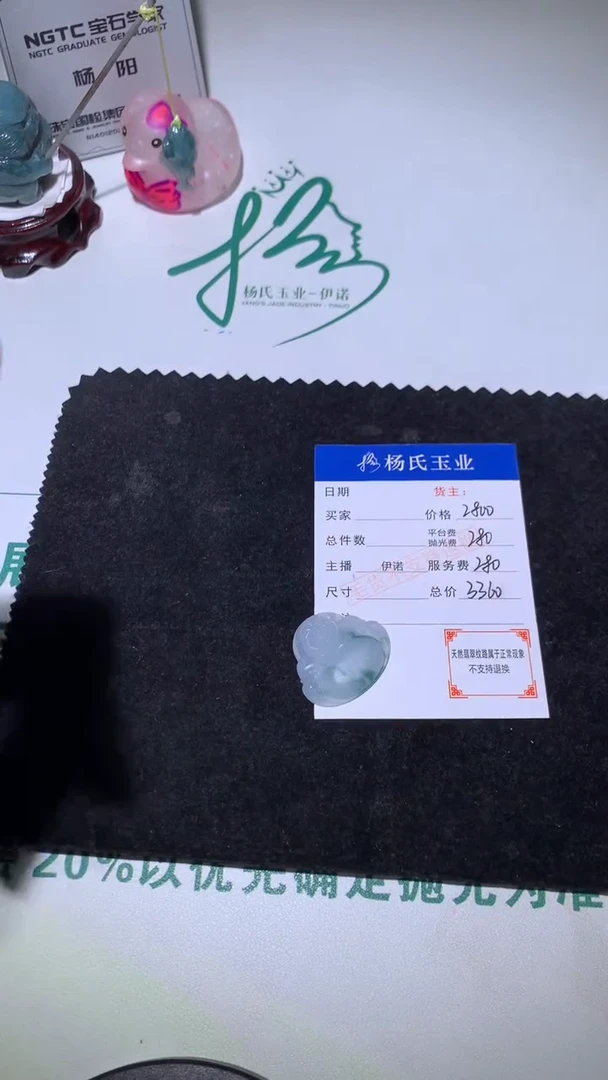 NGTC 宝石学家
NGTC GRADUATE GEMOLOGIST
杨 阳
杨氏玉业-伊诺
YANG'S JADE INDUSTRY - YINUO
杨氏玉业
日期 货主：
买家 价格 2800
总件数 平台费 抛光费 280
主播 伊诺 服务费 280
尺寸 总价 3360
天然翡翠纹路属于正常现象
不支持退换
20%以优先确定抛光为准